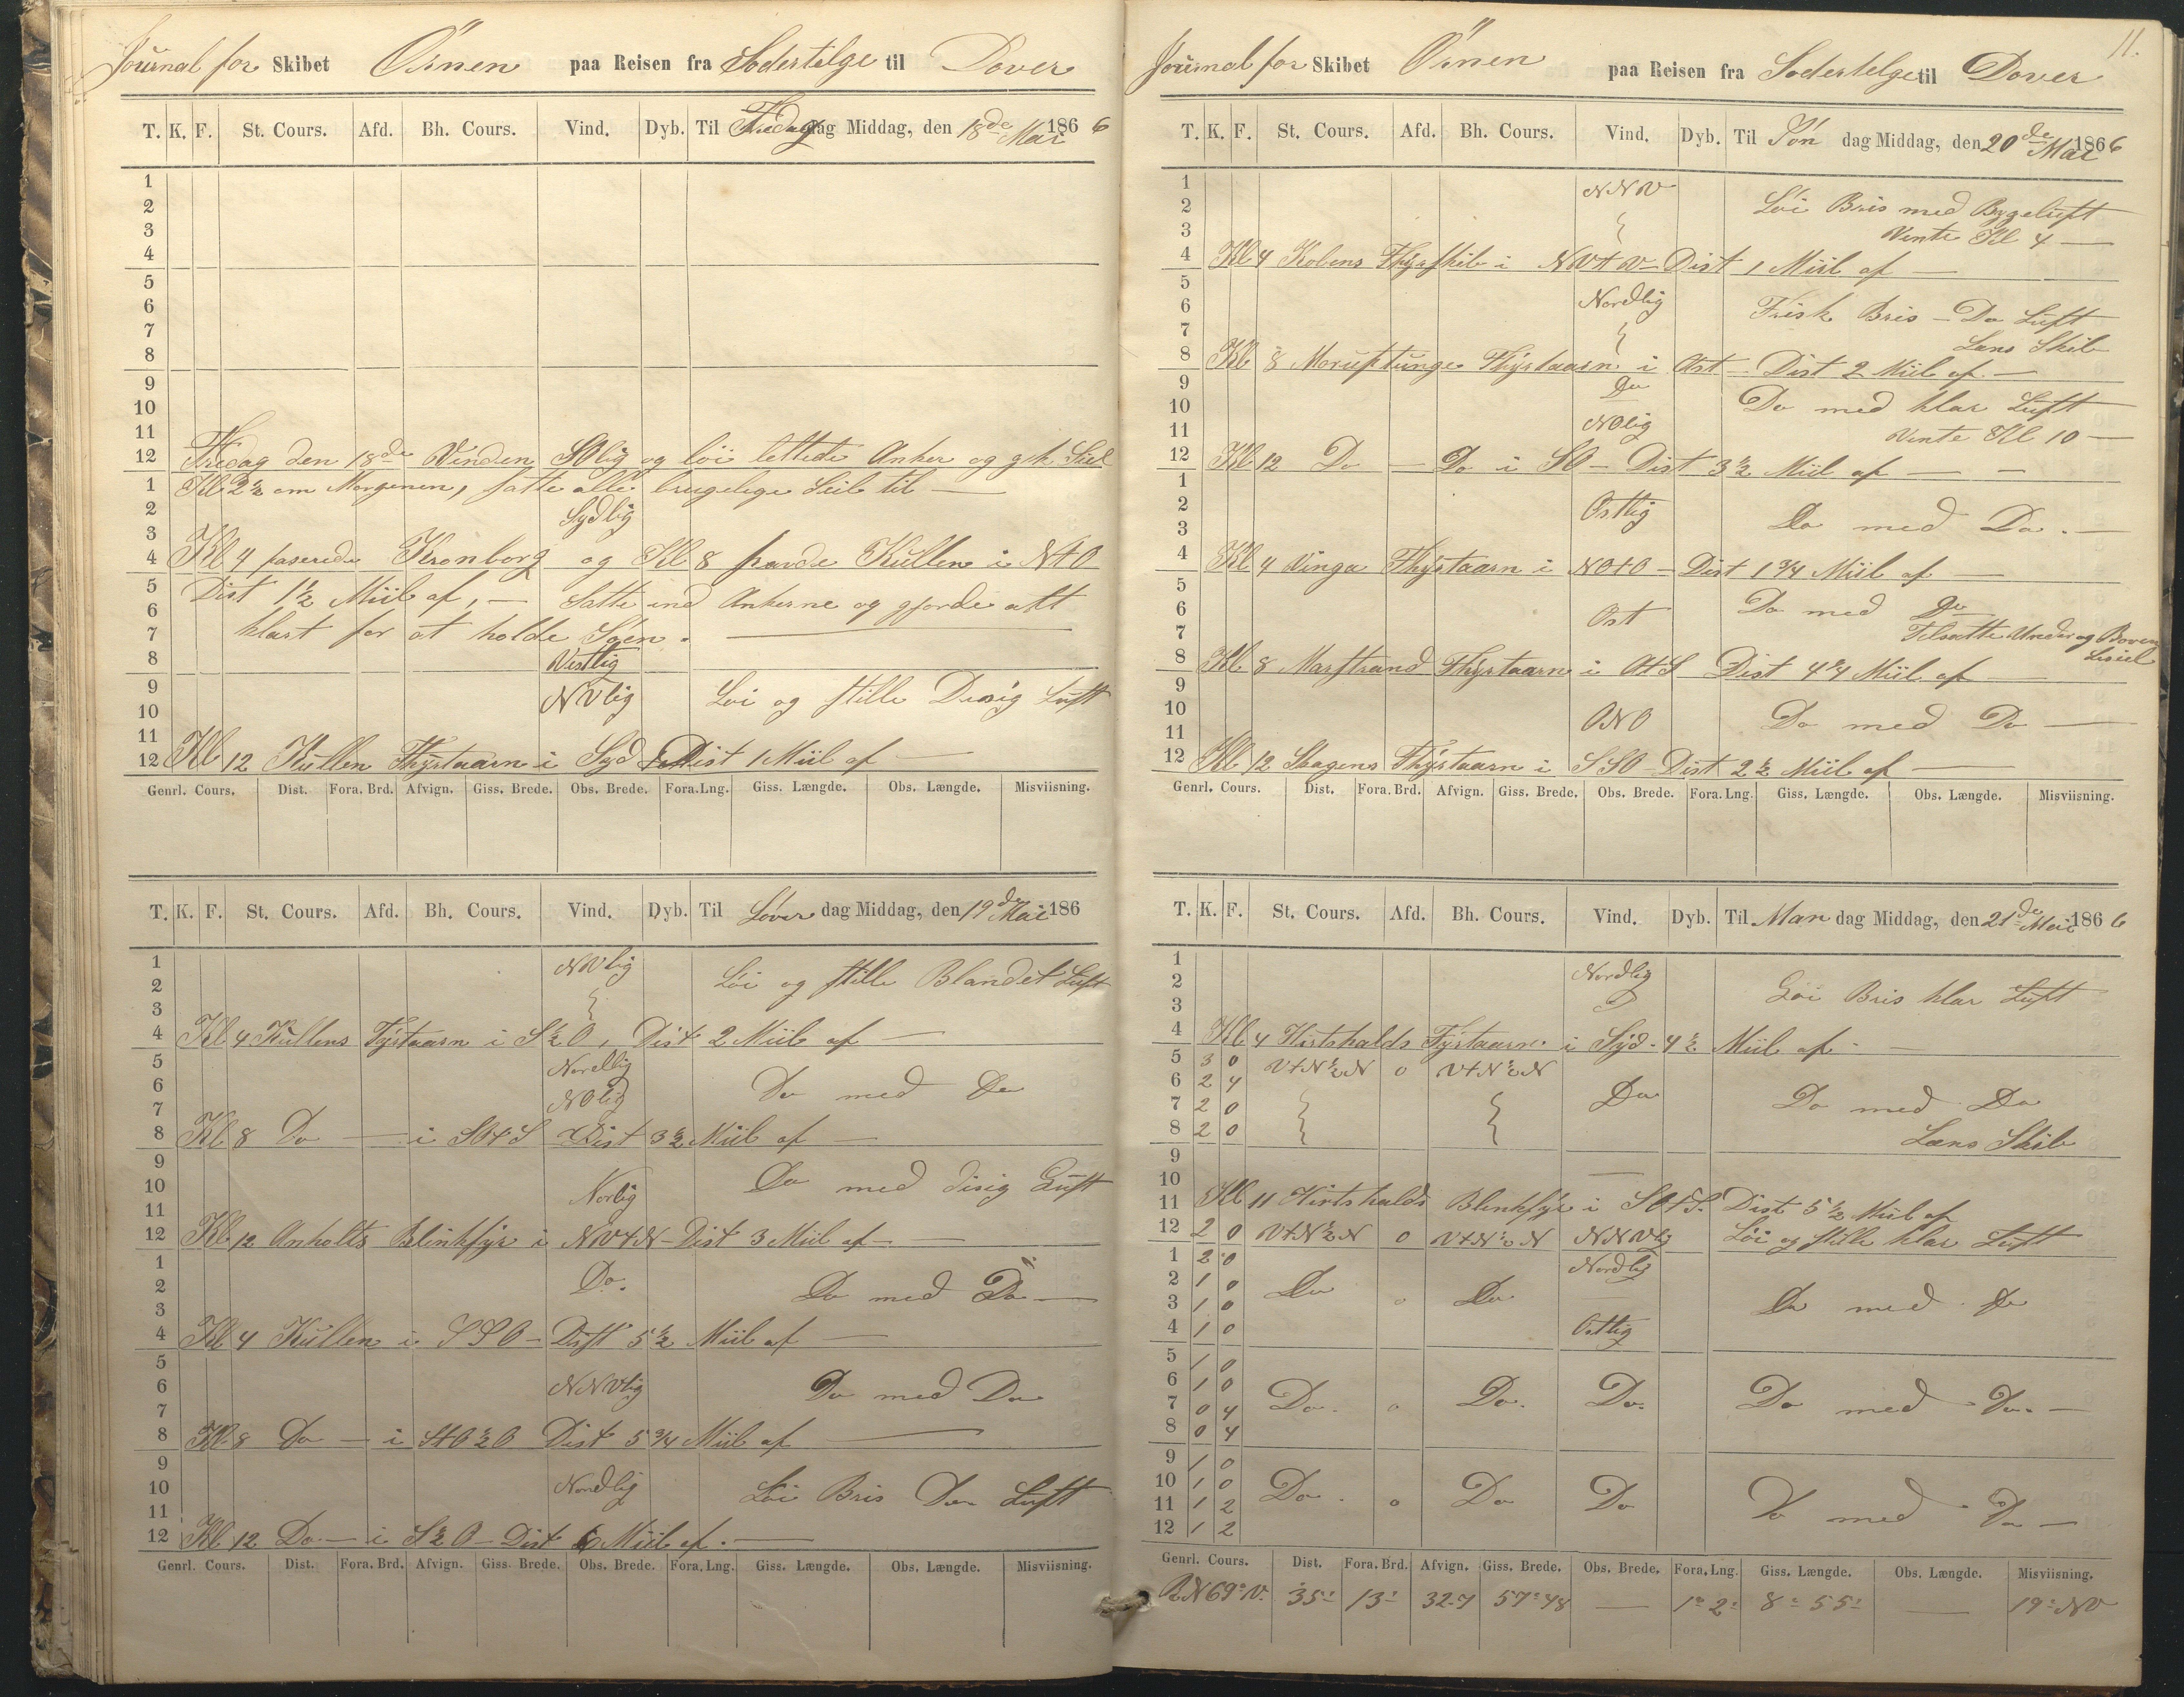 Journal for Skibet Örnen paa Reisen fra Sodertelge til Dover
T. K. F. St. Cours. Afd. Bh. Cours. Vind. Dyb. Til Fredag dag Middag, den 18de Mai 1866
1
2
3
4
5
6
7
8
9
10
11
12 Fredag den 18de Vinden SOlig og löi lettede Anker og gik Seil
1 Kl 2½ om Morgenen, satte alle brugelige Seil til —
2 Sydlig
3
4 Kl 4 paserede Kronborg og Kl 8 havde Kullen i NtO
5 Dist 1½ Miil af, — Satte ind Ankerne og gjorde alt
6
7 klart for at holde Söen. —
8 Vestlig
9 NVlig Löi og stille Disig Luft
10
11
12 Kl 12 Kullen Fhyrtaarn i Syd Dist 1 Miil af —
Genrl. Cours. Dist. Fora. Brd. Afvign. Giss. Brede. Obs. Brede. Fora. Lng. Giss. Længde. Obs. Længde. Misviisning.
T. K. F. St. Cours. Afd. Bh. Cours. Vind. Dyb. Til Löver dag Middag, den 19de Mai 186
1 NVlig Löi og stille Blandet Luft
2
3
4 Kl 4 Kullens Fyrtaarn i S½O, Dist 2 Miil af —
5 Nordlig
6 NOlig Do med Do
7
8 Kl 8 Do — i SOtS Dist 3½ Miil af —
9
10 Norlig Do med disig Luft
11
12 Kl 12 Anholts Blinkfyr i NVtN — Dist 3 Miil af —
1
2 Do. Do med Do —
3
4 Kl 4 Kullen i SSO — Dist 5½ Miil af —
5
6 NNVlig Do med Do
7
8 Kl. 8 Do — i StO½O Dist 5¾ Miil af —
9
10 Nordlig Löi Bris Do Luft
11
12 Kl 12 Do. — i S½O — Dist 6 Miil af. —
Genrl. Cours. Dist. Fora. Brd. Afvign. Giss. Brede. Obs. Brede. Fora. Lng. Giss. Længde. Obs. Længde. Misviisning.
11.
Journal for Skibet Örnen paa Reisen fra Sodertelge til Dover
T. K. F. St. Cours. Afd. Bh. Cours. Vind. Dyb. Til Sön dag Middag, den 20de Mai 1866
1 NNV
2 Löi Bris med Bygeluft
3 Vente Kl 4 —
4 Kl 4 Kobens Fhyrskib i NVtV — Dist 1 Miil af —
5
6 Nordlig Frisk Bris — Do Luft
7 Læns Skib
8 Kl 8 Moruptunge Fhyrtaarn i Ost — Dist 2 Miil af. —
9 Do
10 Do med klar Luft
11 NOlig Vente Kl 10 —
12 Kl 12 Do — Do i SO — Dist 3½ Miil af — —
1
2 Ostlig
3 Do med Do. —
4 Kl 4 Vinga Fhyrtaarn i NOtO — Dist 1¾ Miil af —
5
6 Ost Do med Do
7 Tilsatte Under og Boven
Leseil
8 Kl. 8 Marstrand Fhyrtaarn i OtS Dist 4¾ Miil af —
9
10 ONO Do med Do —
11
12 Kl 12 Skagens Fhyrtaarn i SSO — Dist 2½ Miil af —
Genrl. Cours. Dist. Fora. Brd. Afvign. Giss. Brede. Obs. Brede. Fora. Lng. Giss. Længde. Obs. Længde. Misviisning.
T. K. F. St. Cours. Afd. Bh. Cours. Vind. Dyb. Til Man dag Middag, den 21de Mai 1866
1 Nordlig
2 Löi Bris klar Luft
3
4 Kl 4 Hirtshalds Fyrtaarn. i Syd. 4½ Miil af. —
5 3 0 VtN½N 0 VtN½N
6 2 4 Do Do med Do
7 2 0
8 2 0 Læns Skib
9
10
11 Kl 11 Hirtshalds Blinkfyr i SOtS. Dist 5½ Miil af
12 2 0 VtN½N 0 VtN½N NNVlig Löi og stille klar Luft
1 2 0 Nordlig
2 1 0 Do 0 Do Do med Do
3 1 0
4 1 0 Ostlig
5 1 0
6 1 0 Do. 0 Do. Do. Do med Do. —
7 0 4
8 0 4
9 1 0
10 1 0 Do. 0 Do Do Do med Do —
11 1 2
12 1 2
Genrl. Cours. Dist. Fora. Brd. Afvign. Giss. Brede. Obs. Brede. Fora. Lng. Giss. Længde. Obs. Længde. Misviisning.
RN 69° V. 35' 13' 32.7 57° 48 — 1° 2' 8° 55' — 19° NV